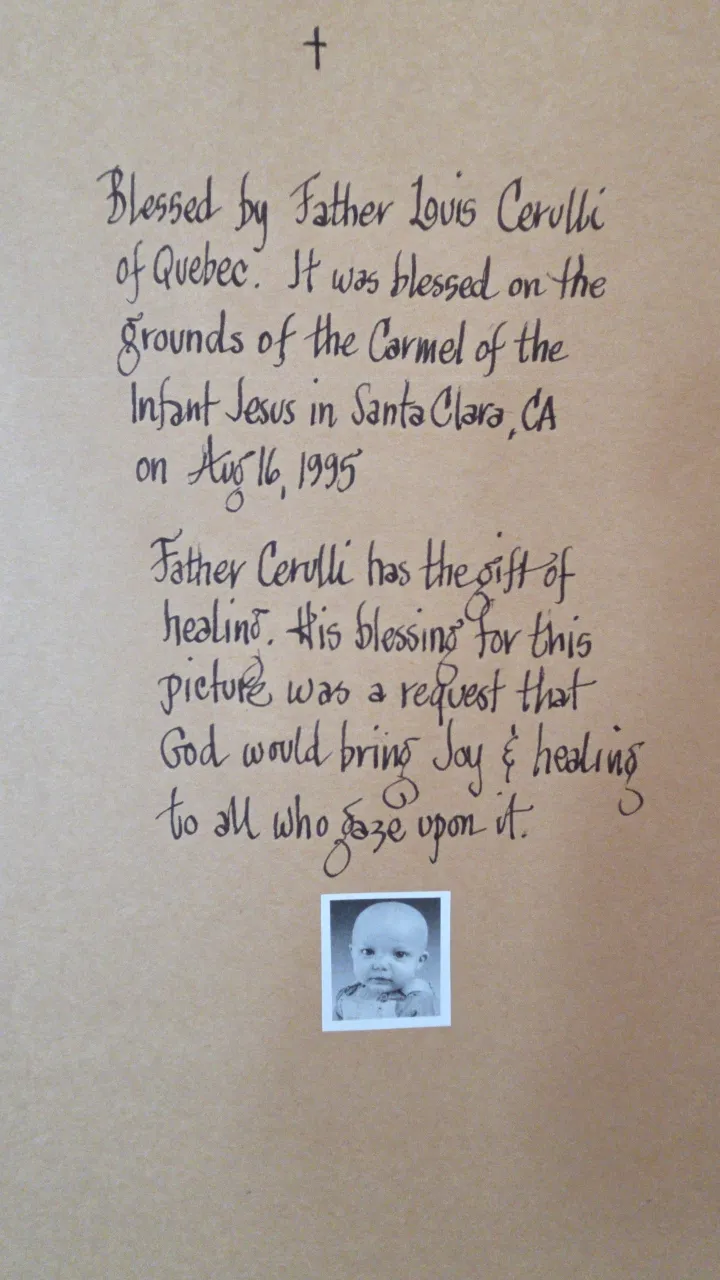 Blessed by Father Louis Cerulli
of Quebec. It was blessed on the
grounds of the Carmel of the
Infant Jesus in Santa Clara, CA
on Aug 16, 1995
Father Cerulli has the gift of
healing. His blessing for this
picture was a request that
God would bring Joy & healing
to all who gaze upon it.